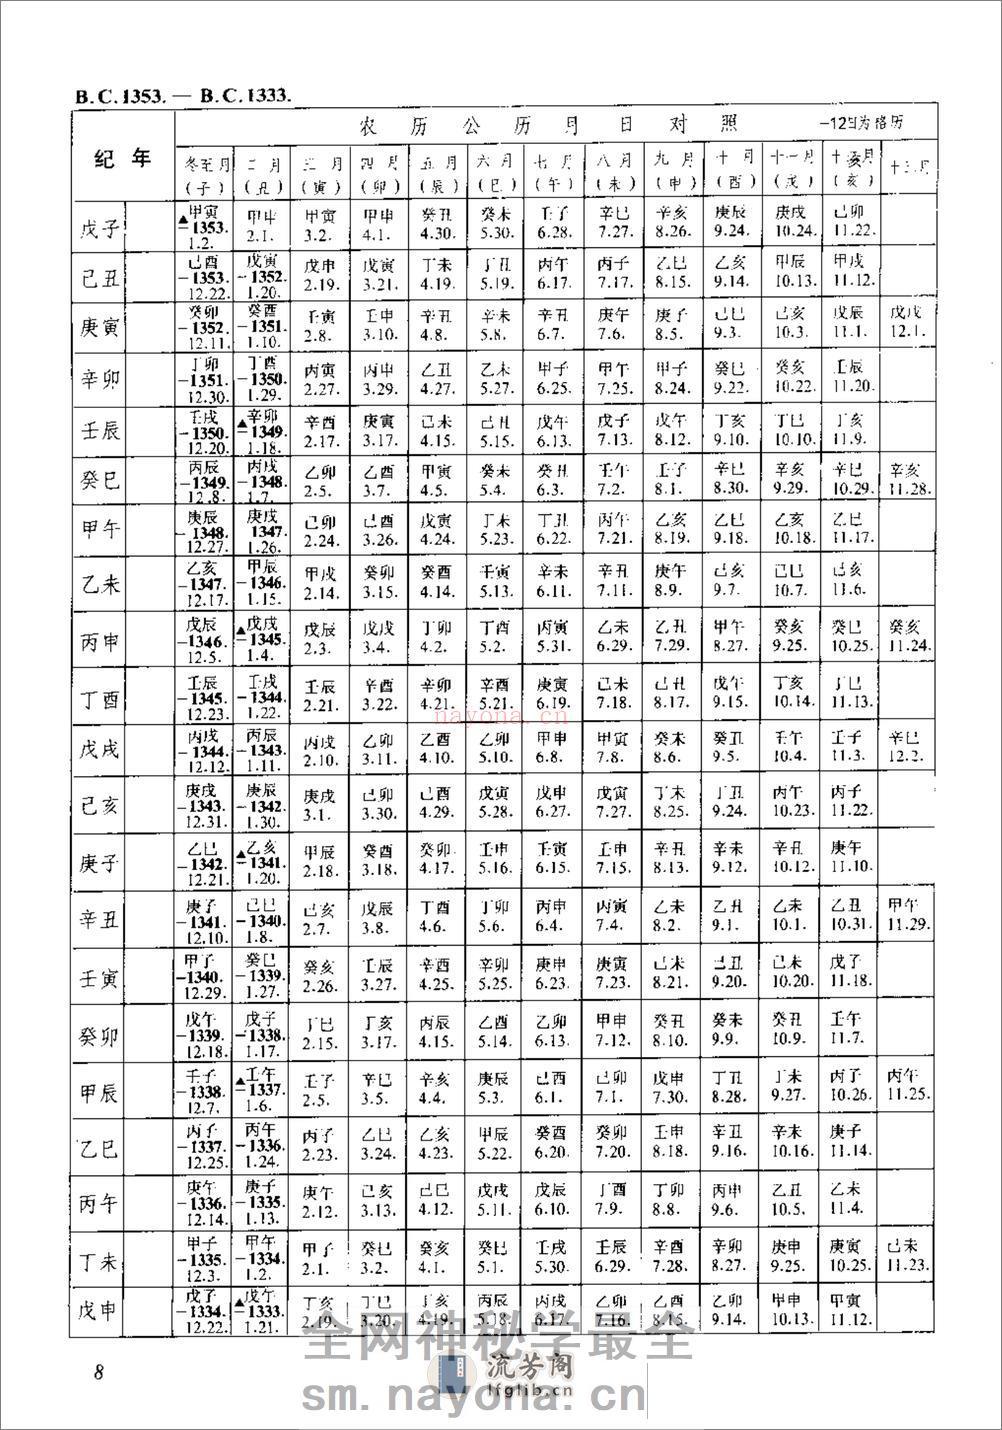 B.C.1353. — B.C.1333.
农 历 公 历 月 日 对 照 -12日为格历
纪 年 冬至月 二月 三月 四月 五月 六月 七月 八月 九月 十月 十一月 十二月 十三月
(子) (丑) (寅) (卯) (辰) (巳) (午) (未) (申) (酉) (戌) (亥)
戊子 ▲甲寅 甲申 甲寅 甲申 癸丑 癸未 壬子 辛巳 辛亥 庚辰 庚戌 己卯
-1353.
1.2. 2.1. 3.2. 4.1. 4.30. 5.30. 6.28. 7.27. 8.26. 9.24. 10.24. 11.22.
己丑 己酉 戊寅 戊申 戊寅 丁未 丁丑 丙午 丙子 乙巳 乙亥 甲辰 甲戌
-1353. -1352.
12.22. 1.20. 2.19. 3.21. 4.19. 5.19. 6.17. 7.17. 8.15. 9.14. 10.13. 11.12.
庚寅 癸卯 癸酉 壬寅 壬申 辛丑 辛未 辛丑 庚午 庚子 己巳 己亥 戊辰 戊戌
-1352. -1351.
12.11. 1.10. 2.8. 3.10. 4.8. 5.8. 6.7. 7.6. 8.5. 9.3. 10.3. 11.1. 12.1.
辛卯 丁卯 丁酉 丙寅 丙申 乙丑 乙未 甲子 甲午 甲子 癸巳 癸亥 壬辰
-1351. -1350.
12.30. 1.29. 2.27. 3.29. 4.27. 5.27. 6.25. 7.25. 8.24. 9.22. 10.22. 11.20.
壬辰 壬戌 ▲辛卯 辛酉 庚寅 己未 己丑 戊午 戊子 戊午 丁亥 丁巳 丁亥
-1350. -1349.
12.20. 1.18. 2.17. 3.17. 4.15. 5.15. 6.13. 7.13. 8.12. 9.10. 10.10. 11.9.
癸巳 丙辰 丙戌 乙卯 乙酉 甲寅 癸未 癸丑 壬午 壬子 辛巳 辛亥 辛巳 辛亥
-1349. -1348.
12.8. 1.7. 2.5. 3.7. 4.5. 5.4. 6.3. 7.2. 8.1. 8.30. 9.29. 10.29. 11.28.
甲午 庚辰 庚戌 己卯 己酉 戊寅 丁未 丁丑 丙午 乙亥 乙巳 乙亥 乙巳
-1348. 1347.
12.27. 1.26. 2.24. 3.26. 4.24. 5.23. 6.22. 7.21. 8.19. 9.18. 10.18. 11.17.
乙未 乙亥 甲辰 甲戌 癸卯 癸酉 壬寅 辛未 辛丑 庚午 己亥 己巳 己亥
-1347. -1346.
12.17. 1.15. 2.14. 3.15. 4.14. 5.13. 6.11. 7.11. 8.9. 9.7. 10.7. 11.6.
丙申 戊辰 ▲戊戌 戊辰 戊戌 丁卯 丁酉 丙寅 乙未 乙丑 甲午 癸亥 癸巳 癸亥
-1346. -1345.
12.5. 1.4. 2.3. 3.4. 4.2. 5.2. 5.31. 6.29. 7.29. 8.27. 9.25. 10.25. 11.24.
丁酉 壬辰 壬戌 壬辰 辛酉 辛卯 辛酉 庚寅 己未 己丑 戊午 丁亥 丁巳
-1345. -1344.
12.23. 1.22. 2.21. 3.22. 4.21. 5.21. 6.19. 7.18. 8.17. 9.15. 10.14. 11.13.
nayona.cn
戊戌 丙戌 丙辰 丙戌 乙卯 乙酉 乙卯 甲申 甲寅 癸未 癸丑 壬午 壬子 辛巳
-1344. -1343.
12.12. 1.11. 2.10. 3.11. 4.10. 5.10. 6.8. 7.8. 8.6. 9.5. 10.4. 11.3. 12.2.
己亥 庚戌 庚辰 庚戌 己卯 己酉 戊寅 戊申 戊寅 丁未 丁丑 丙午 丙子
-1343. -1342.
12.31. 1.30. 3.1. 3.30. 4.29. 5.28. 6.27. 7.27. 8.25. 9.24. 10.23. 11.22.
庚子 乙巳 ▲乙亥 甲辰 癸酉 癸卯 壬申 壬寅 壬申 辛丑 辛未 辛丑 庚午
-1342. -1341.
12.21. 1.20. 2.18. 3.18. 4.17. 5.16. 6.15. 7.15. 8.13. 9.12. 10.12. 11.10.
辛丑 庚子 己巳 己亥 戊辰 丁酉 丁卯 丙申 丙寅 乙未 乙丑 乙未 乙丑 甲午
-1341. -1340.
12.10. 1.8. 2.7. 3.8. 4.6. 5.6. 6.4. 7.4. 8.2. 9.1. 10.1. 10.31. 11.29.
壬寅 甲子 癸巳 癸亥 壬辰 辛酉 辛卯 庚申 庚寅 己未 己丑 己未 戊子
-1340. -1339.
12.29. 1.27. 2.26. 3.27. 4.25. 5.25. 6.23. 7.23. 8.21. 9.20. 10.20. 11.18.
癸卯 戊午 戊子 丁巳 丁亥 丙辰 乙酉 乙卯 甲申 癸丑 癸未 癸丑 壬午
-1339. -1338.
12.18. 1.17. 2.15. 3.17. 4.15. 5.14. 6.13. 7.12. 8.10. 9.9. 10.9. 11.7.
甲辰 壬子 ▲壬午 壬子 辛巳 辛亥 庚辰 己酉 己卯 戊申 丁丑 丁未 丙子 丙午
-1338. -1337.
12.7. 1.6. 2.5. 3.5. 4.4. 5.3. 6.1. 7.1. 7.30. 8.28. 9.27. 10.26. 11.25.
乙巳 丙子 丙午 丙子 乙巳 乙亥 甲辰 癸酉 癸卯 壬申 辛丑 辛未 庚子
-1337. -1336.
12.25. 1.24. 2.23. 3.24. 4.23. 5.22. 6.20. 7.20. 8.18. 9.16. 10.16. 11.14.
丙午 庚午 庚子 庚午 己亥 己巳 戊戌 戊辰 丁酉 丁卯 丙申 乙丑 乙未
-1336. -1335.
12.14. 1.13. 2.12. 3.13. 4.12. 5.11. 6.10. 7.9. 8.8. 9.6. 10.5. 11.4.
丁未 甲子 甲午 甲子 癸巳 癸亥 癸巳 壬戌 壬辰 辛酉 辛卯 庚申 庚寅 己未
-1335. -1334.
12.3. 1.2. 2.1. 3.2. 4.1. 5.1. 5.30. 6.29. 7.28. 8.27. 9.25. 10.25. 11.23.
戊申 戊子 ▲戊午 丁亥 丁巳 丁亥 丙辰 丙戌 乙卯 乙酉 乙卯 甲申 甲寅
-1334. -1333.
12.22. 1.21. 2.19. 3.20. 4.19. 5.18. 6.17. 7.16. 8.15. 9.14. 10.13. 11.12.
全网神秘学最全
8
流芳阁
lfglib.cn
sm.nayona.cn